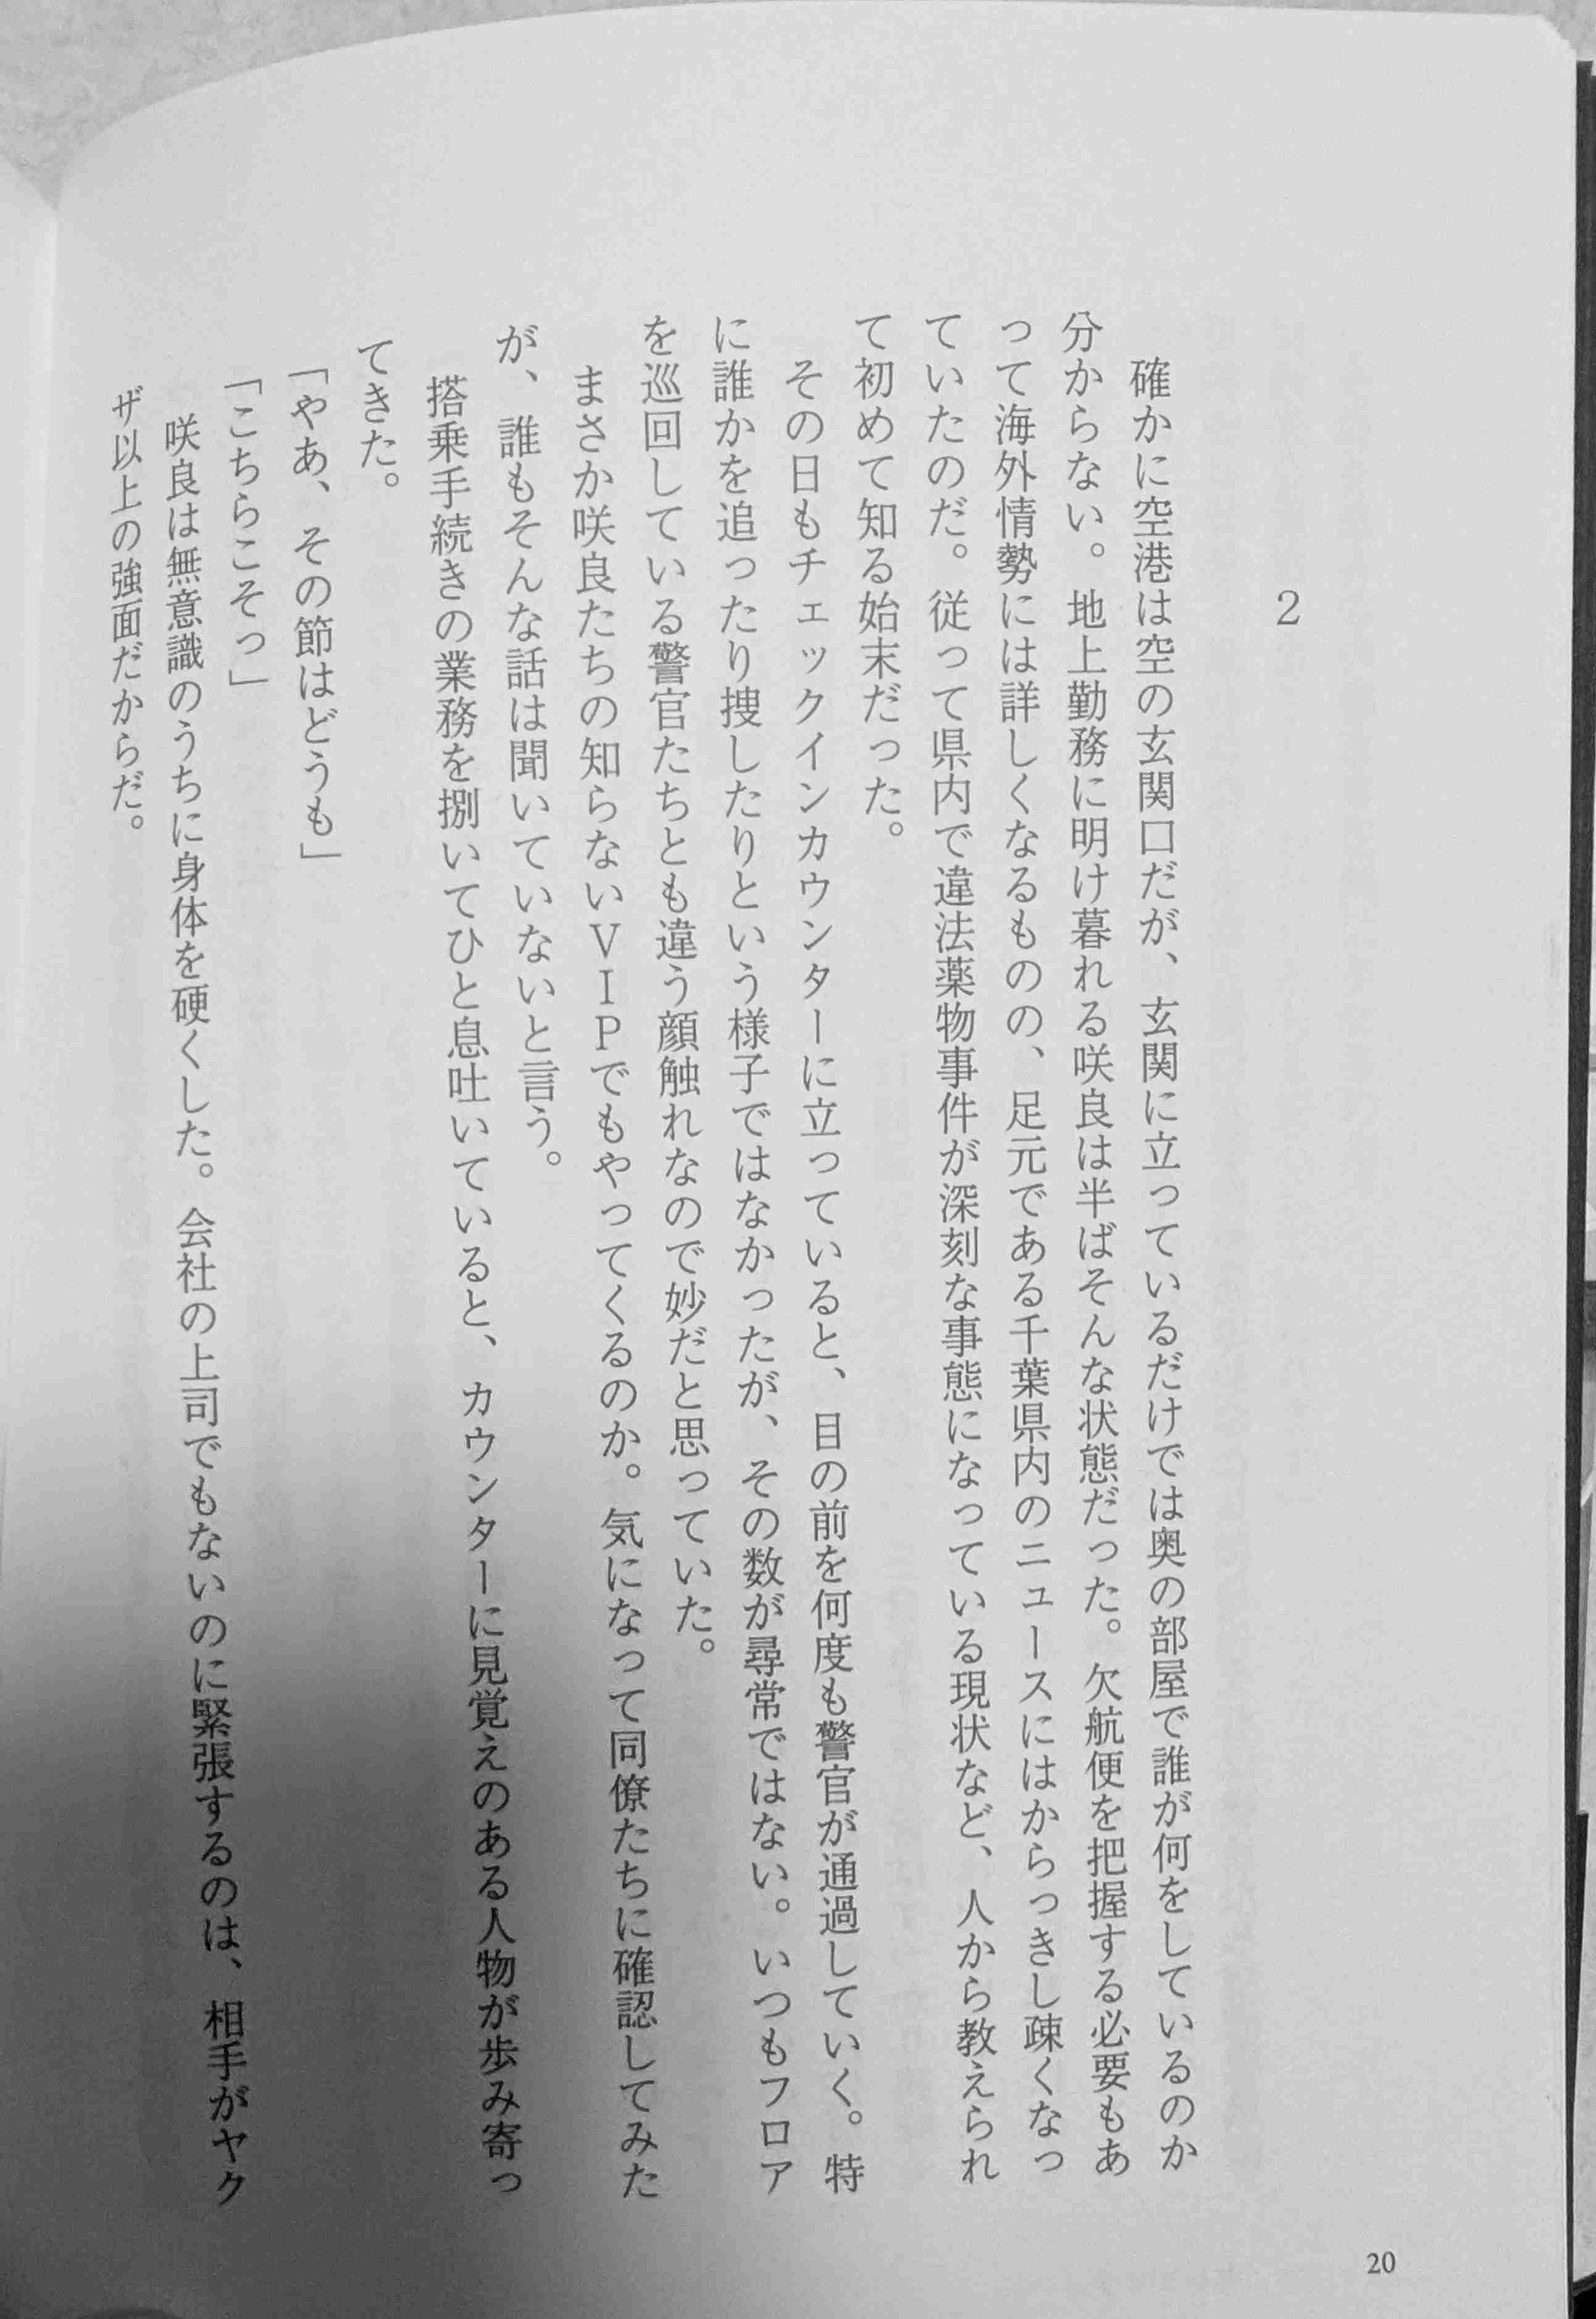 2
確かに空港は空の玄関口だが、玄関に立っているだけでは奥の部屋で誰が何をしているのか
分からない。地上勤務に明け暮れる咲良は半ばそんな状態だった。欠航便を把握する必要もあ
って海外情勢には詳しくなるものの、足元である千葉県内のニュースにはからっきし疎くなっ
ていたのだ。従って県内で違法薬物事件が深刻な事態になっている現状など、人から教えられ
て初めて知る始末だった。
その日もチェックインカウンターに立っていると、目の前を何度も警官が通過していく。特
に誰かを追ったり捜したりという様子ではなかったが、その数が尋常ではない。いつもフロア
を巡回している警官たちとも違う顔触れなので妙だと思っていた。
まさか咲良たちの知らないVIPでもやってくるのか。気になって同僚たちに確認してみた
が、誰もそんな話は聞いていないと言う。
搭乗手続きの業務を捌いてひと息吐いていると、カウンターに見覚えのある人物が歩み寄っ
てきた。
「やあ、その節はどうも」
「こちらこそっ」
咲良は無意識のうちに身体を硬くした。会社の上司でもないのに緊張するのは、相手がヤク
ザ以上の強面だからだ。
20